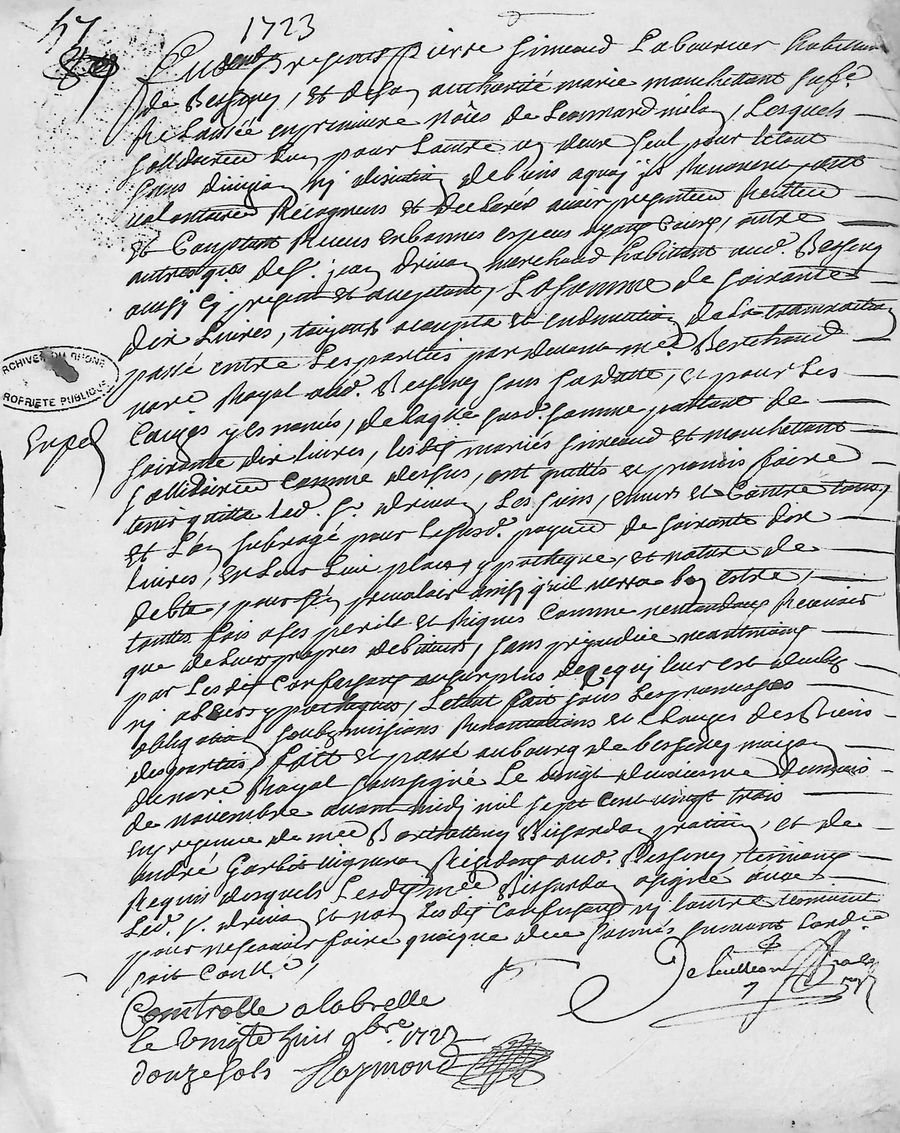 47
1723
present pierre Laboureur habitant
de Bessenay, et de son authorité marie manchettant sa fe.
relaissée en premiere nôces de Leonnard Lesquels
sollidairem. l'un pour l'autre un deux seul pour le tout
sans division ny discution de biens a quoy ils Renoncent,
volontaires Recognus et declaré avoir
et Comptant Receus en bonnes especes ayant Cours, outre
autres quis de s. jean drivon marchand habitant aud. Bessenay
aussi cy present et acceptant, La somme de soixante
dix Livres, toujours acompte et en deduction de la transaction
passé entre Les parties par devant me. Berthaud
nore. Royal aud. Bessenay sous sa datte, et pour Les
Causes y es nommés, de laquelle susd. somme partant de
soixante dix livres, lesdits mariés et manchettant
sollidairem. Comme dessus, ont quitté et promis faire
tenir quitte led. s. drivon, Les siens, envers et Contre tous,
et L'on subrogé pour le susd. payem. de soixante dix
livres, en Leur Lieu place, ypotheque, et nature de
debte, pour s'en prevaloir ainsy qu'il verra bon estre,
touttes fois a ses perils et Risques Comme n'entendant Recevoir
que de Leurs propres debiteurs, sans prejudice neantmoins
par Lesdits Confessants au surplus de ce qui leur est deub
ny a leurs ypotheques, Le tout fait sous Les promesses
obligation soubmissions Renonciations et Clauses des biens
des parties, fait et passé au bourg de bessenay maison
du nore Royal soussigné Le vingt deuxiesme du mois
de novembre avant midy mil sept cent vingt trois
en presence de mee Barthellemy Bissardon praticien, et de
andré Garbit vigneron Residants aud. Bessenay, temoins
Requis desquels Lesd. mee Bissardon a signé avec
Led. s. drivon et non Lesdits Confessants ny l'autre temoint
pour ne scavoir faire quoique de ce sommés suivant L'ordce.
soit Conllé,
Exped
ARCHIVES DU RHONE
PROPRIETE PUBLIQUE
Comtrolle a labrelle
le vingte huit 9bre 1723
douze sols Raymond